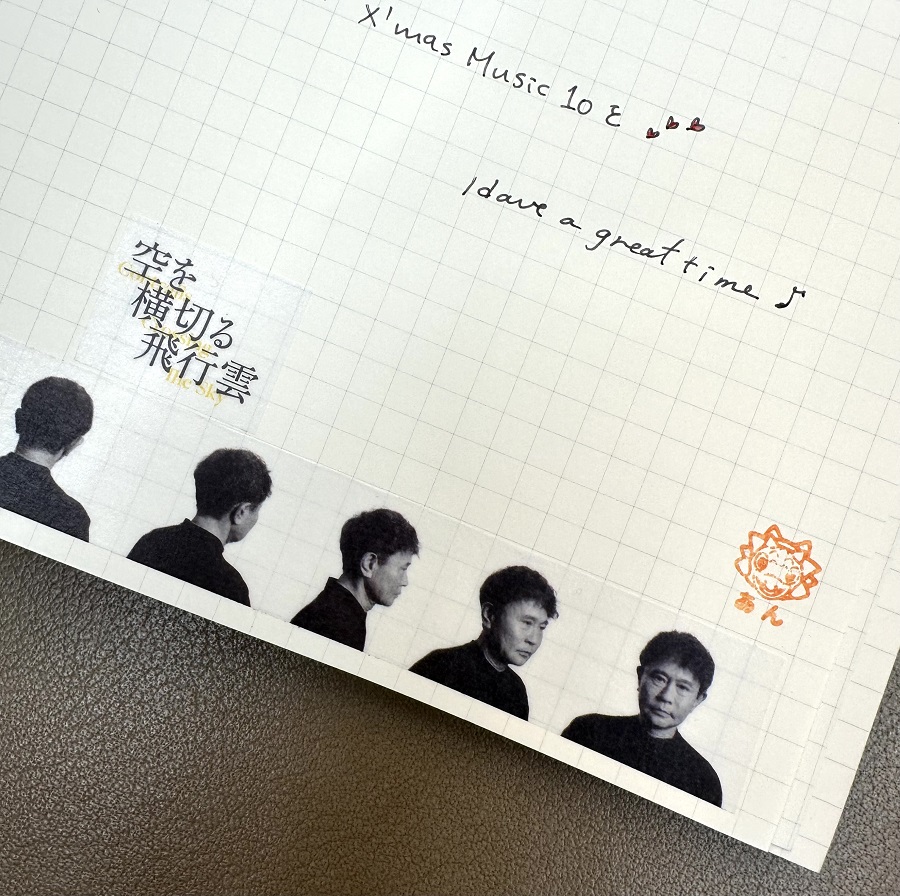 X'mas Music 10 と
I dave a great time ♪
空を
横切る
飛行雲
Crossing
the Sky
あん